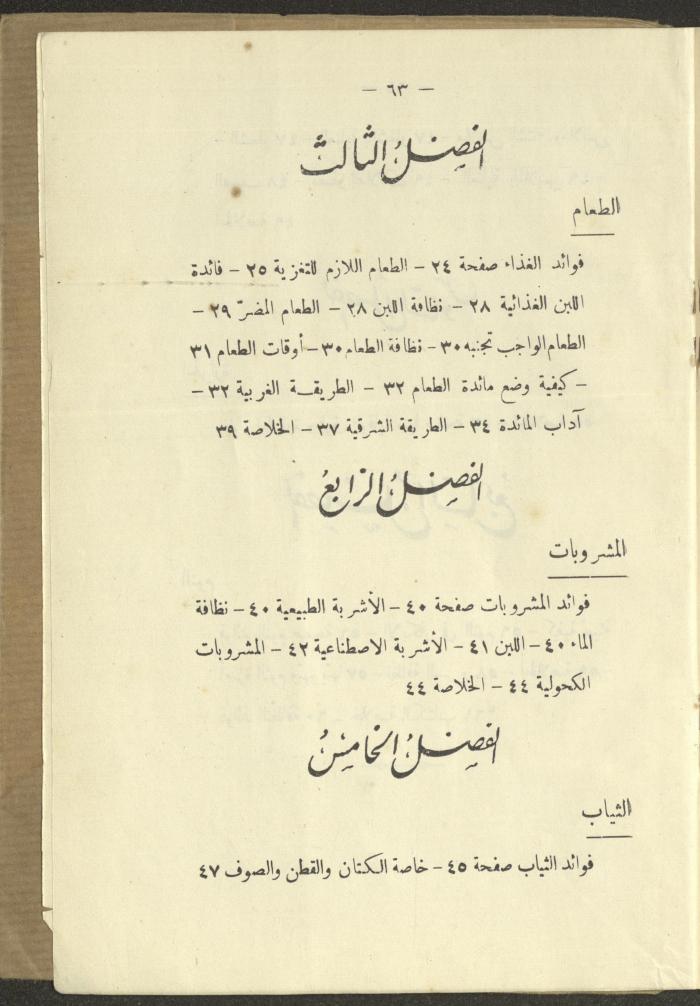 — ٦٣ —
الفصل الثالث
الطعام
فوائد الغذاء صفحة ٢٤ – الطعام اللازم للتغزية ٢٥ – فائدة
اللبن الغذائية ٢٨ – نظافة اللبن ٢٨ – الطعام المضرّ ٢٩ –
الطعام الواجب تجنبه ٣٠ – نظافة الطعام ٣٠ – أوقات الطعام ٣١
– كيفية وضع مائدة الطعام ٣٢ – الطريقة الغربية ٣٢ –
آداب المائدة ٣٤ – الطريقة الشرقية ٣٧ – الخلاصة ٣٩
الفصل الرابع
المشروبات
فوائد المشروبات صفحة ٤٠ – الأشربة الطبيعية ٤٠ – نظافة
الماء ٤٠ – اللبن ٤١ – الأشربة الاصطناعية ٤٢ – المشروبات
الكحولية ٤٤ – الخلاصة ٤٤
الفصل الخامس
الثياب
فوائد الثياب صفحة ٤٥ – خاصة الكتان والقطن والصوف ٤٧